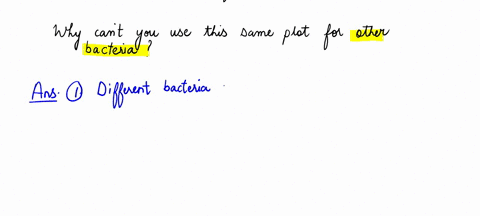 Why can't you use this same plot for other
bacteria?
Ans. ① Different bacteria